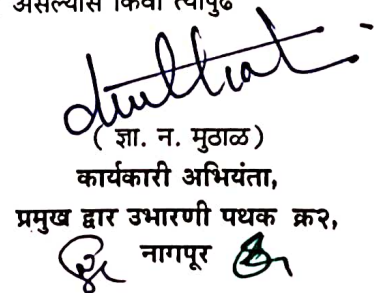 असल्यास किंवा त्यापुढे
( ज्ञा. न. मुठाळ)
कार्यकारी अभियंता,
प्रमुख द्वार उभारणी पथक क्र२,
नागपूर